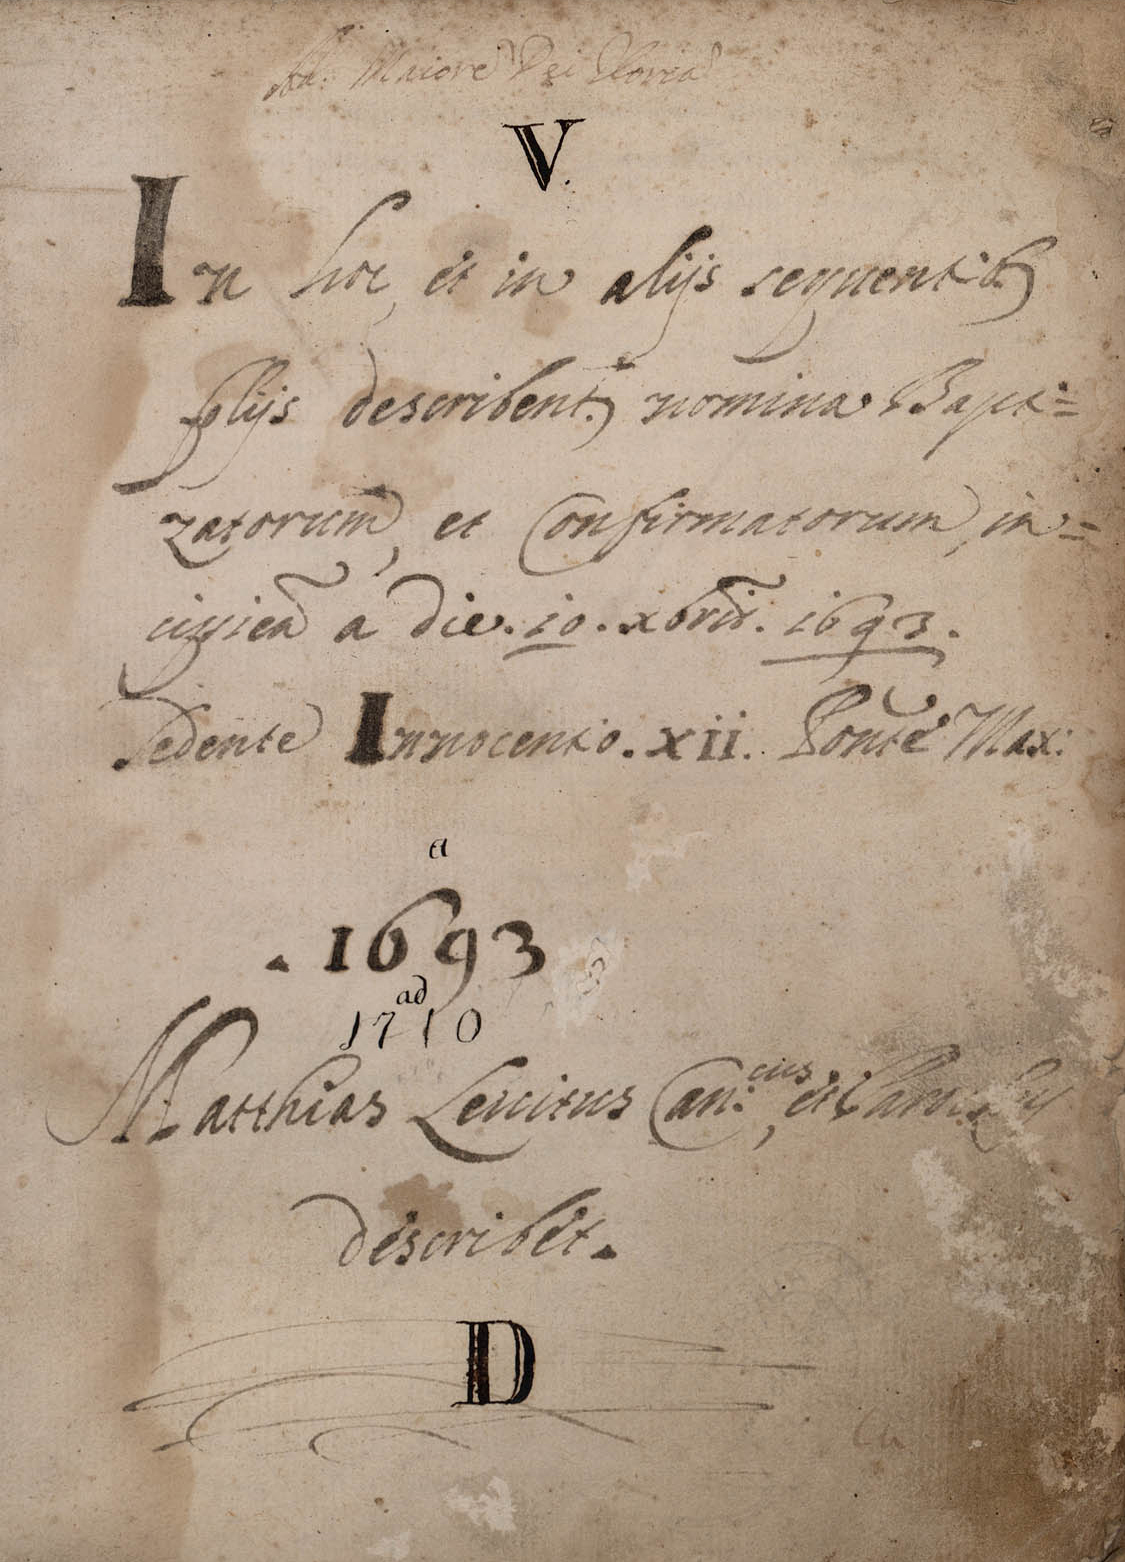 Ad Maiore Dei Gloria
V
In hoc, et in alijs sequentib9
folijs describent9 nomina Bapt=
zatorum, et Confirmatorum, in=
cipiea a die. 10. xbris. 1693.
Sedente Innocentio. XII. Ponte Max:
a
. 1693
ad
1710
Matthias Leuitus Can:cus, et
describet.
D